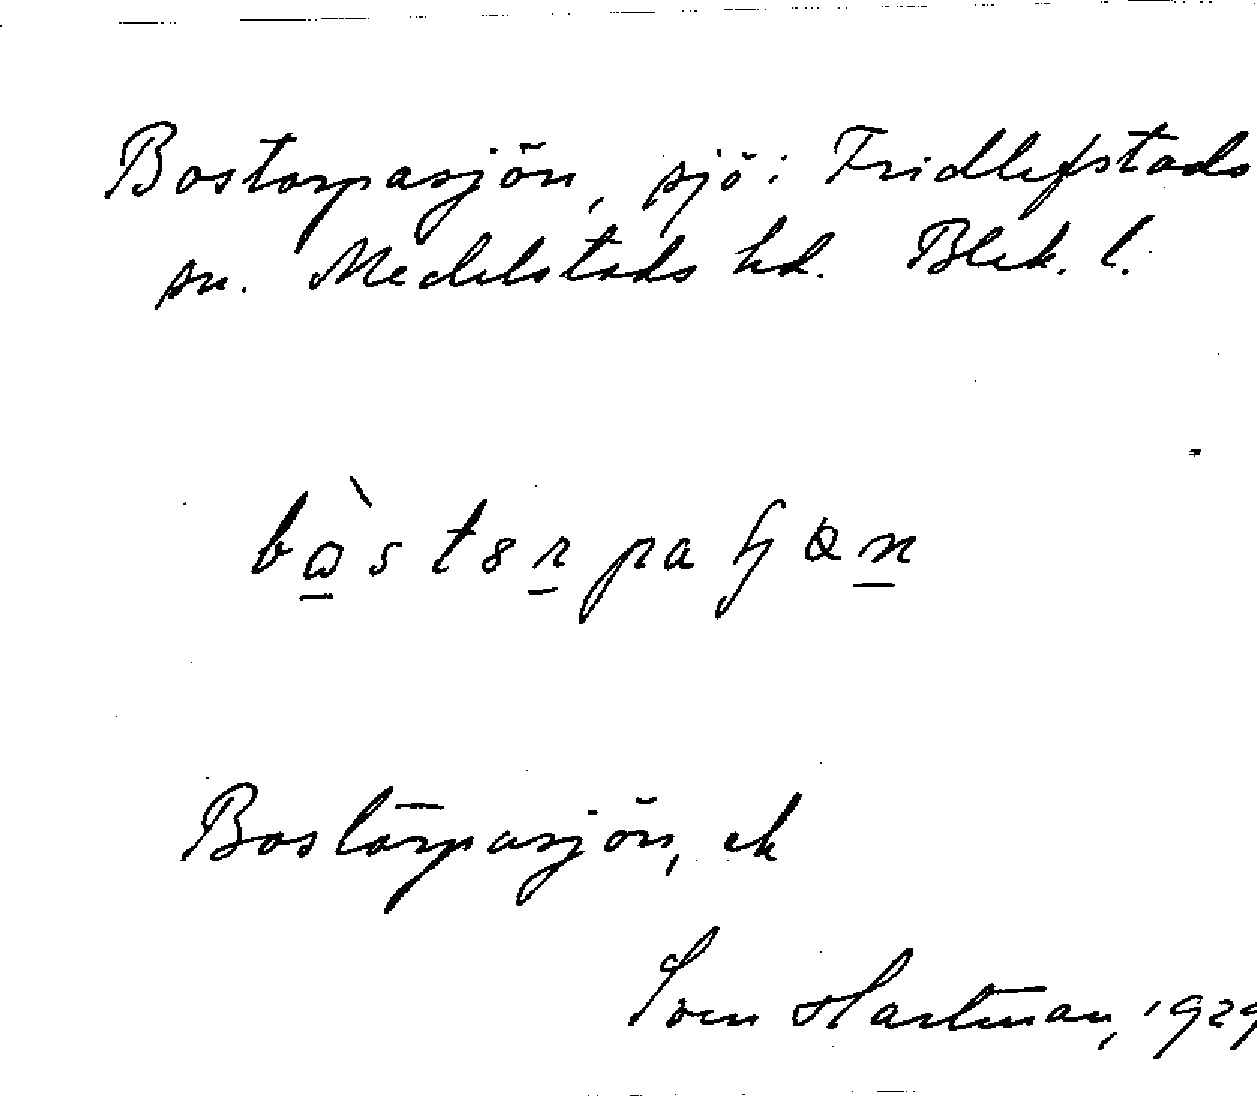 Bostorpasjön, sjö i Fridlefstads
sn. Medelstads hd. Blek. l.
Bostorpasjön, ek
Sven Hartman, 1929